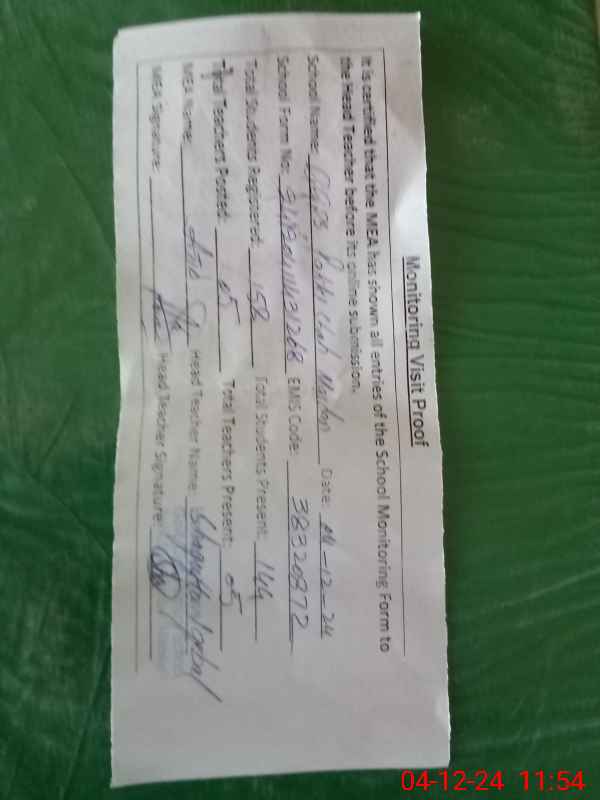 Monitoring Visit Proof
It is certified that the MEA has shown all entries of the School Monitoring Form to
the Head Teacher before its online submission.
School Name: Date: 04-12-24
School Form No: EMIS Code: 38320972
Total Students Registered: 158 Total Students Present: 144
Total Teachers Posted: 05 Total Teachers Present: 05
MEA Name: Head Teacher Name:
MEA Signature: Head Teacher Signature:
04-12-24 11:54